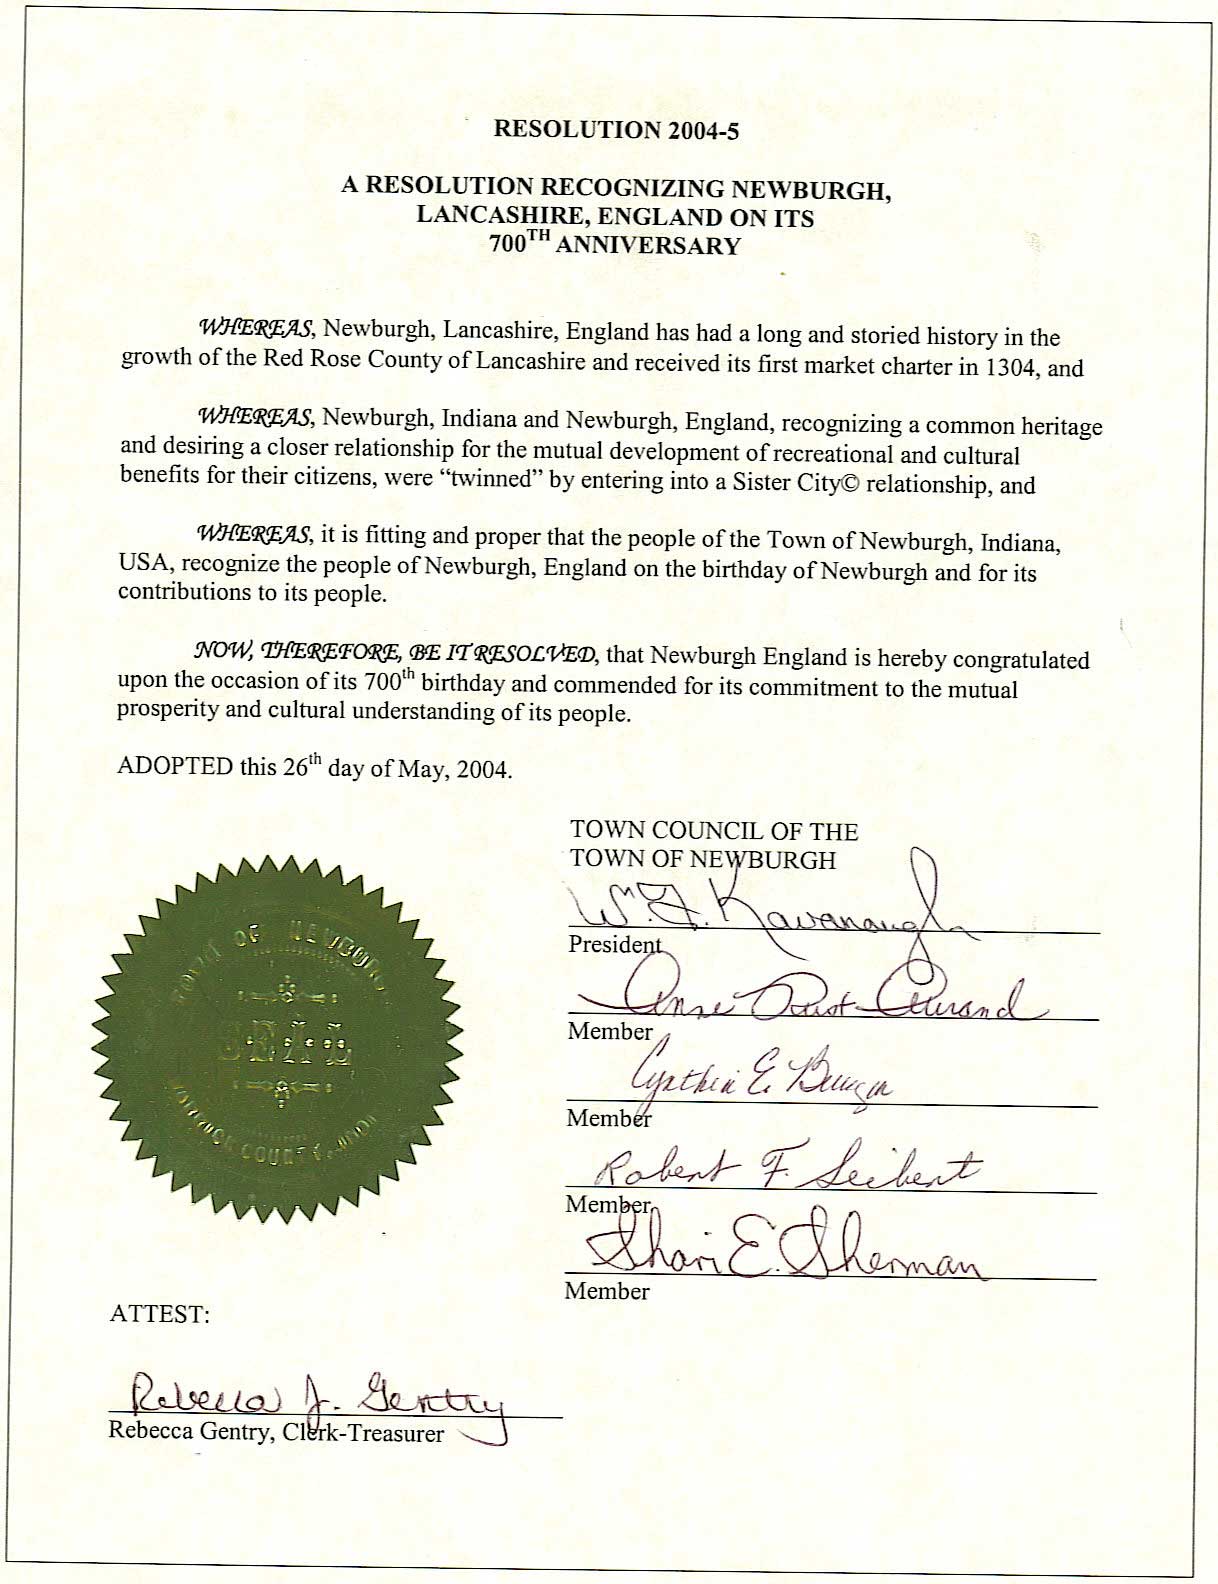 RESOLUTION 2004-5
A RESOLUTION RECOGNIZING NEWBURGH,
LANCASHIRE, ENGLAND ON ITS
700TH ANNIVERSARY
WHEREAS, Newburgh, Lancashire, England has had a long and storied history in the
growth of the Red Rose County of Lancashire and received its first market charter in 1304, and
WHEREAS, Newburgh, Indiana and Newburgh, England, recognizing a common heritage
and desiring a closer relationship for the mutual development of recreational and cultural
benefits for their citizens, were “twinned” by entering into a Sister City© relationship, and
WHEREAS, it is fitting and proper that the people of the Town of Newburgh, Indiana,
USA, recognize the people of Newburgh, England on the birthday of Newburgh and for its
contributions to its people.
NOW, THEREFORE, BE IT RESOLVED, that Newburgh England is hereby congratulated
upon the occasion of its 700th birthday and commended for its commitment to the mutual
prosperity and cultural understanding of its people.
ADOPTED this 26th day of May, 2004.
TOWN COUNCIL OF THE
TOWN OF NEWBURGH
Wm. F. Kavanaugh
President
Anne Rust-Aurand
Member
Cynthia E.
Member
Robert F. Seibert
Member
Shari E. Sherman
Member
TOWN OF NEWBURGH
SEAL
WARRICK COUNTY, INDIANA
ATTEST:
Rebecca J. Gentry
Rebecca Gentry, Clerk-Treasurer